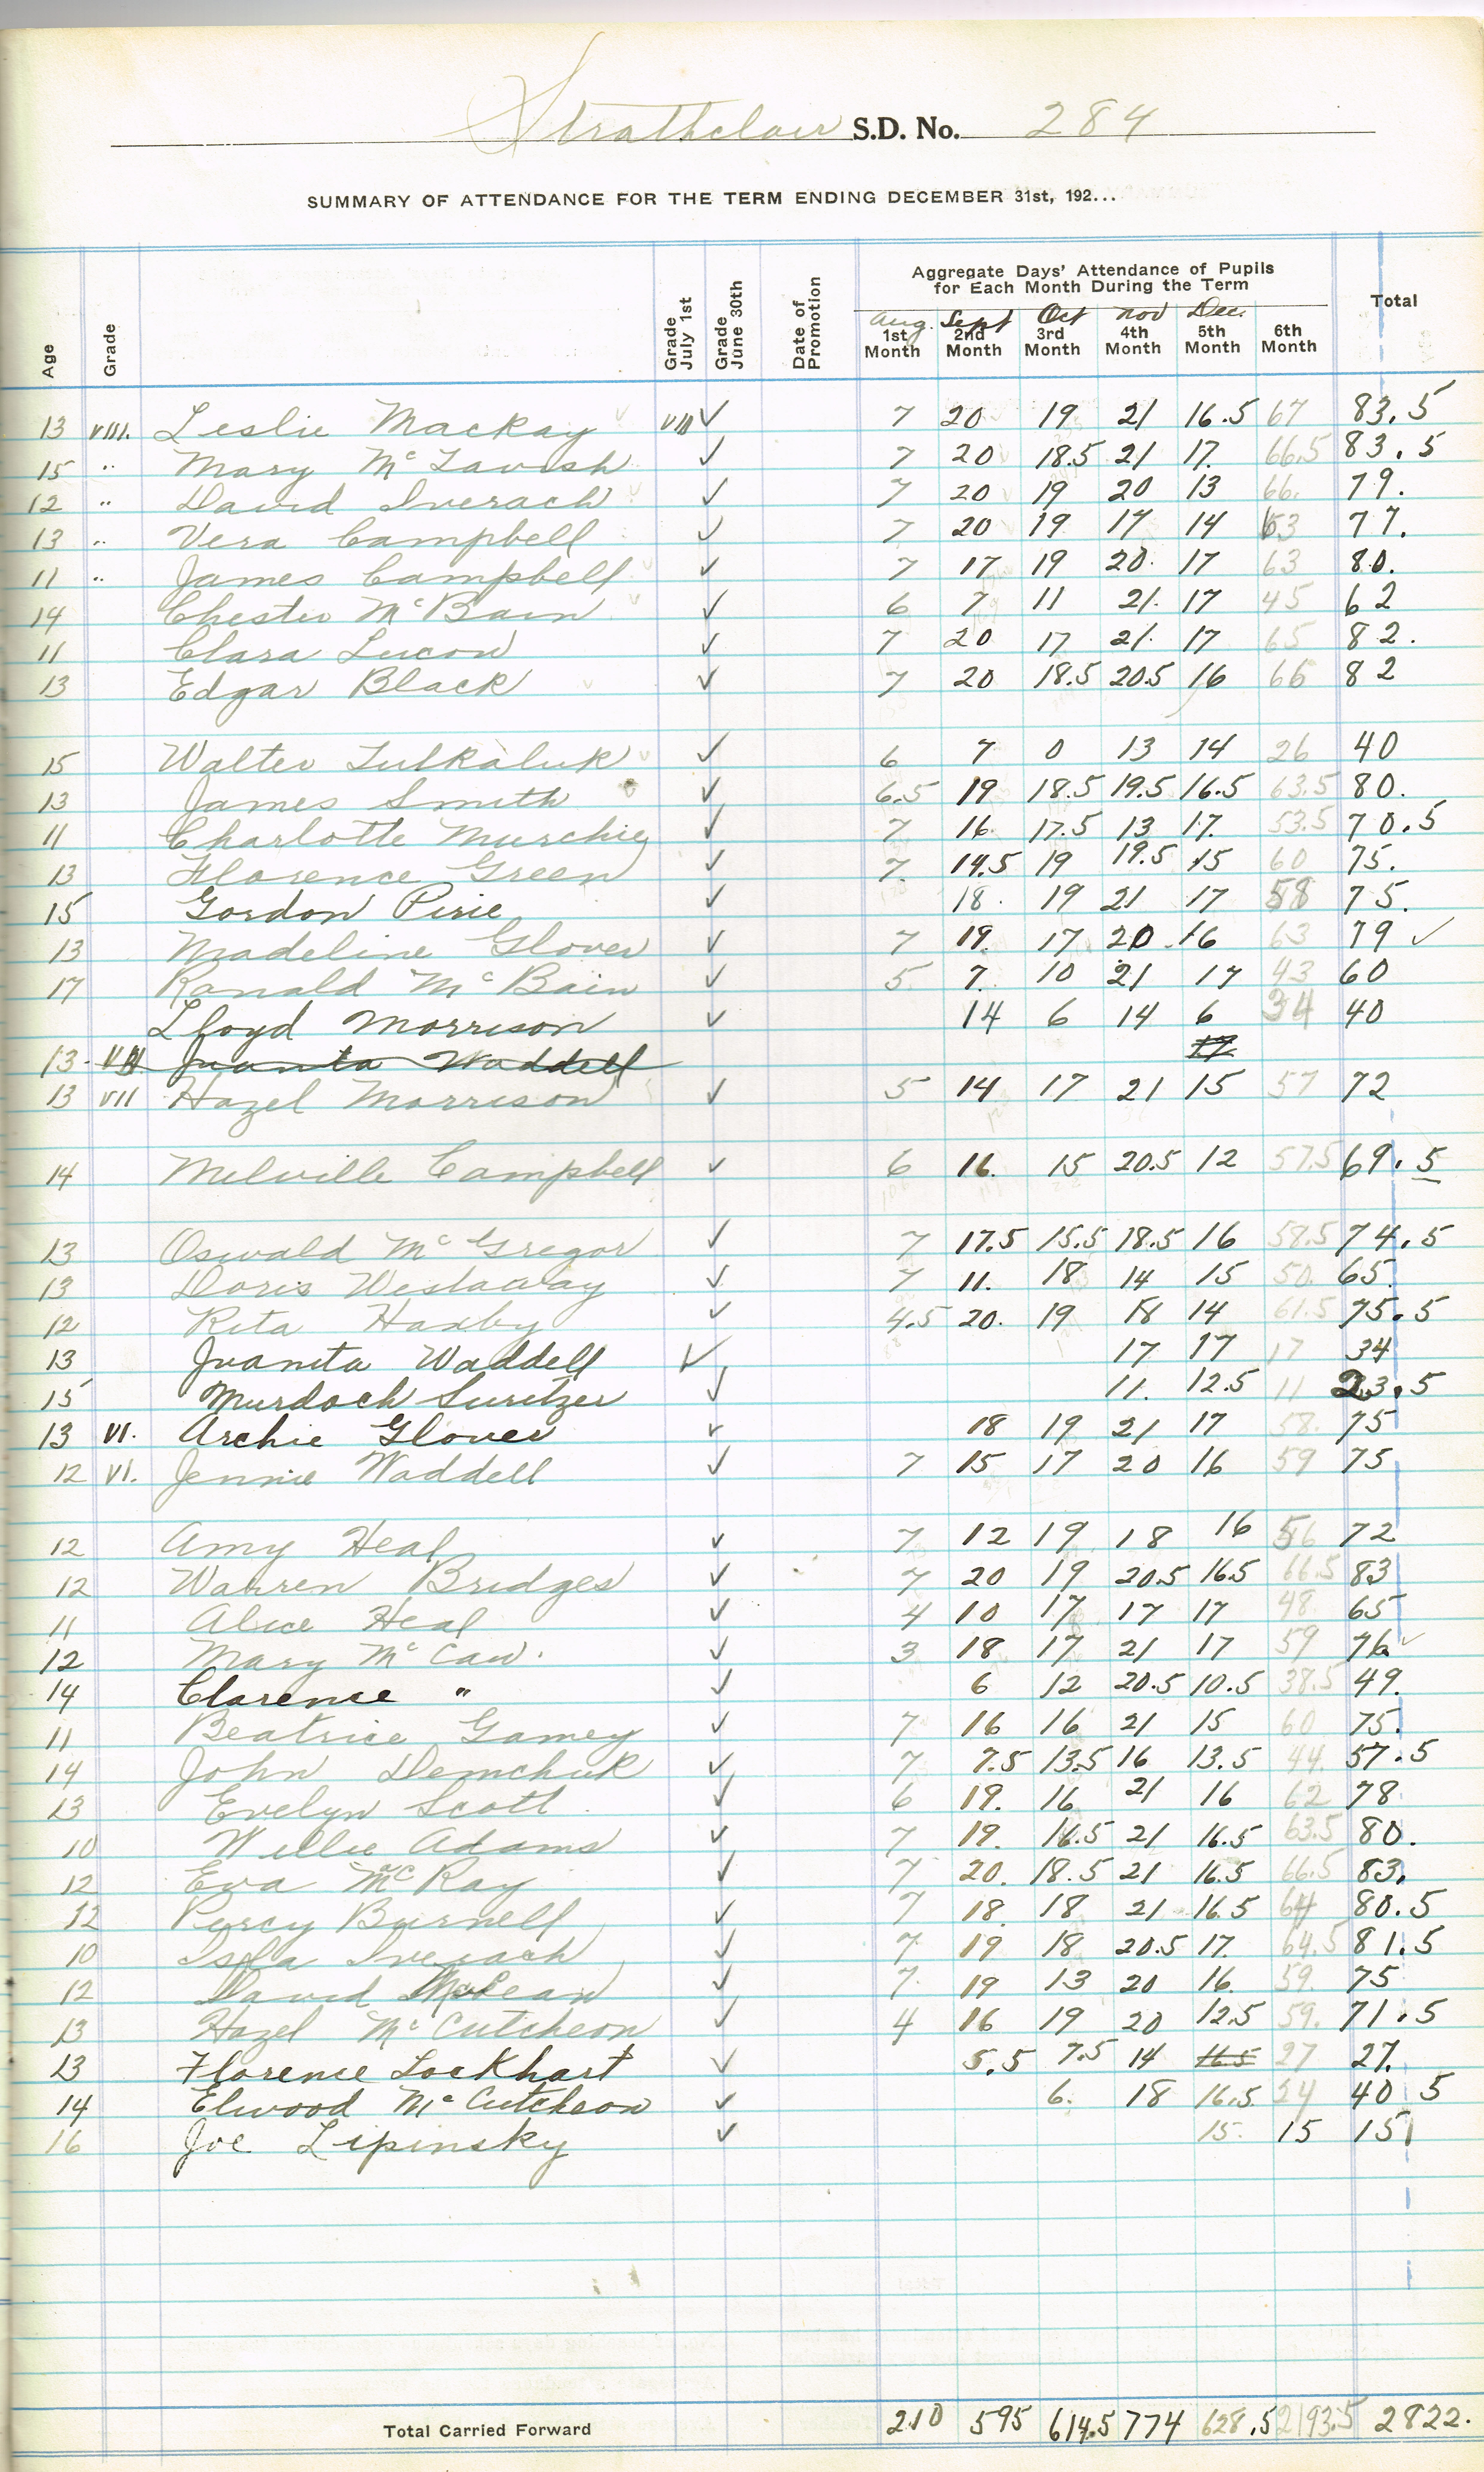 Strathclair S.D. No. 284
SUMMARY OF ATTENDANCE FOR THE TERM ENDING DECEMBER 31st, 192...
Age Grade Grade July 1st Grade June 30th Date of Promotion Aggregate Days' Attendance of Pupils for Each Month During the Term Total
Aug. Sept Oct Nov Dec.
1st Month 2nd Month 3rd Month 4th Month 5th Month 6th Month
13 VIII. Leslie Mackay VIII ✓ 7 20 19 21 16.5 67 83.5
15 " Mary McTavish ✓ 7 20 18.5 21 17. 66.5 83.5
12 " David Inverach ✓ 7 20 19 20 13 66. 79.
13 " Vera Campbell ✓ 7 20 19 17 14 63 77.
11 " James Campbell ✓ 7 17 19 20. 17 63 80.
14 Chester McBain ✓ 6 7 11 21. 17 45 62
11 Clara Lucow ✓ 7 20 17 21. 17 65 82.
13 Edgar Black ✓ 7 20 18.5 20.5 16 66 82
15 Walter Tulkaluk ✓ 6 7 0 13 14 26 40
13 James Smith ✓ 6.5 19 18.5 19.5 16.5 63.5 80.
11 Charlotte Murchie ✓ 7 16. 17.5 13 17. 53.5 70.5
13 Florence Green ✓ 7. 14.5 19 19.5 15 60 75.
15 Gordon Pirie ✓ 18. 19 21 17 58 75.
13 Madeline Glover ✓ 7 19. 17 20 16 63 79 ✓
17 Ronald McBain ✓ 5. 7. 10 21 17 43 60
Lloyd Morrison ✓ 14 6 14 6 34 40
13 VII Juanita Waddell 17
13 VII Hazel Morrison ✓ 5 14 17 21 15 57 72
14 Melville Campbell ✓ 6 16. 15 20.5 12 57.5 69.5
13 Oswald McGregor ✓ 7 17.5 15.5 18.5 16 58.5 74.5
13 Doris Westaway ✓ 7 11. 18 14 15 50. 65.
12 Rita Haxby ✓ 4.5 20. 19 18 14 61.5 75.5
13 Juanita Waddell ✓ 17 17 17 34
15 Murdoch Suritzer ✓ 11. 12.5 11 23.5
13 VI. Archie Glover ✓ 18 19 21 17 58. 75
12 VI. Jennie Waddell ✓ 7 15 17 20 16 59 75
12 Amy Heal ✓ 7 12 19 18 16 56 72
12 Warren Bridges ✓ 7 20 19 20.5 16.5 66.5 83
11 Alice Heal ✓ 4 10 17 17 17 48 65
12 Mary McCaw. ✓ 3 18 17 21 17 59 76 ✓
14 Clarence " ✓ 6 12 20.5 10.5 38.5 49.
11 Beatrice Gamey ✓ 7 16 16 21 15 60 75.
14 John Demchuk ✓ 7 7.5 13.5 16 13.5 44. 57.5
13 Evelyn Scott ✓ 6 19. 16 21 16 62 78
10 Willie Adams ✓ 7 19. 16.5 21 16.5 63.5 80.
12 Eva McRay ✓ 7 20. 18.5 21 16.5 66.5 83.
12 Percy Burnell ✓ 7 18. 18 21 16.5 64 80.5
10 Isla Inverach ✓ 7. 19 18 20.5 17. 64.5 81.5
12 David McLean ✓ 7. 19 13 20 16. 59. 75
13 Hazel McCutcheon ✓ 4 16 19 20 12.5 59. 71.5
13 Florence Lockhart ✓ 5.5 7.5 14 16.5 27 27.
14 Elwood McCutcheon ✓ 6. 18 16.5 24 40 5
16 Joe Lipinsky ✓ 15. 15 15
Total Carried Forward 210 595 614.5 774 628.5 2193.5 2822.